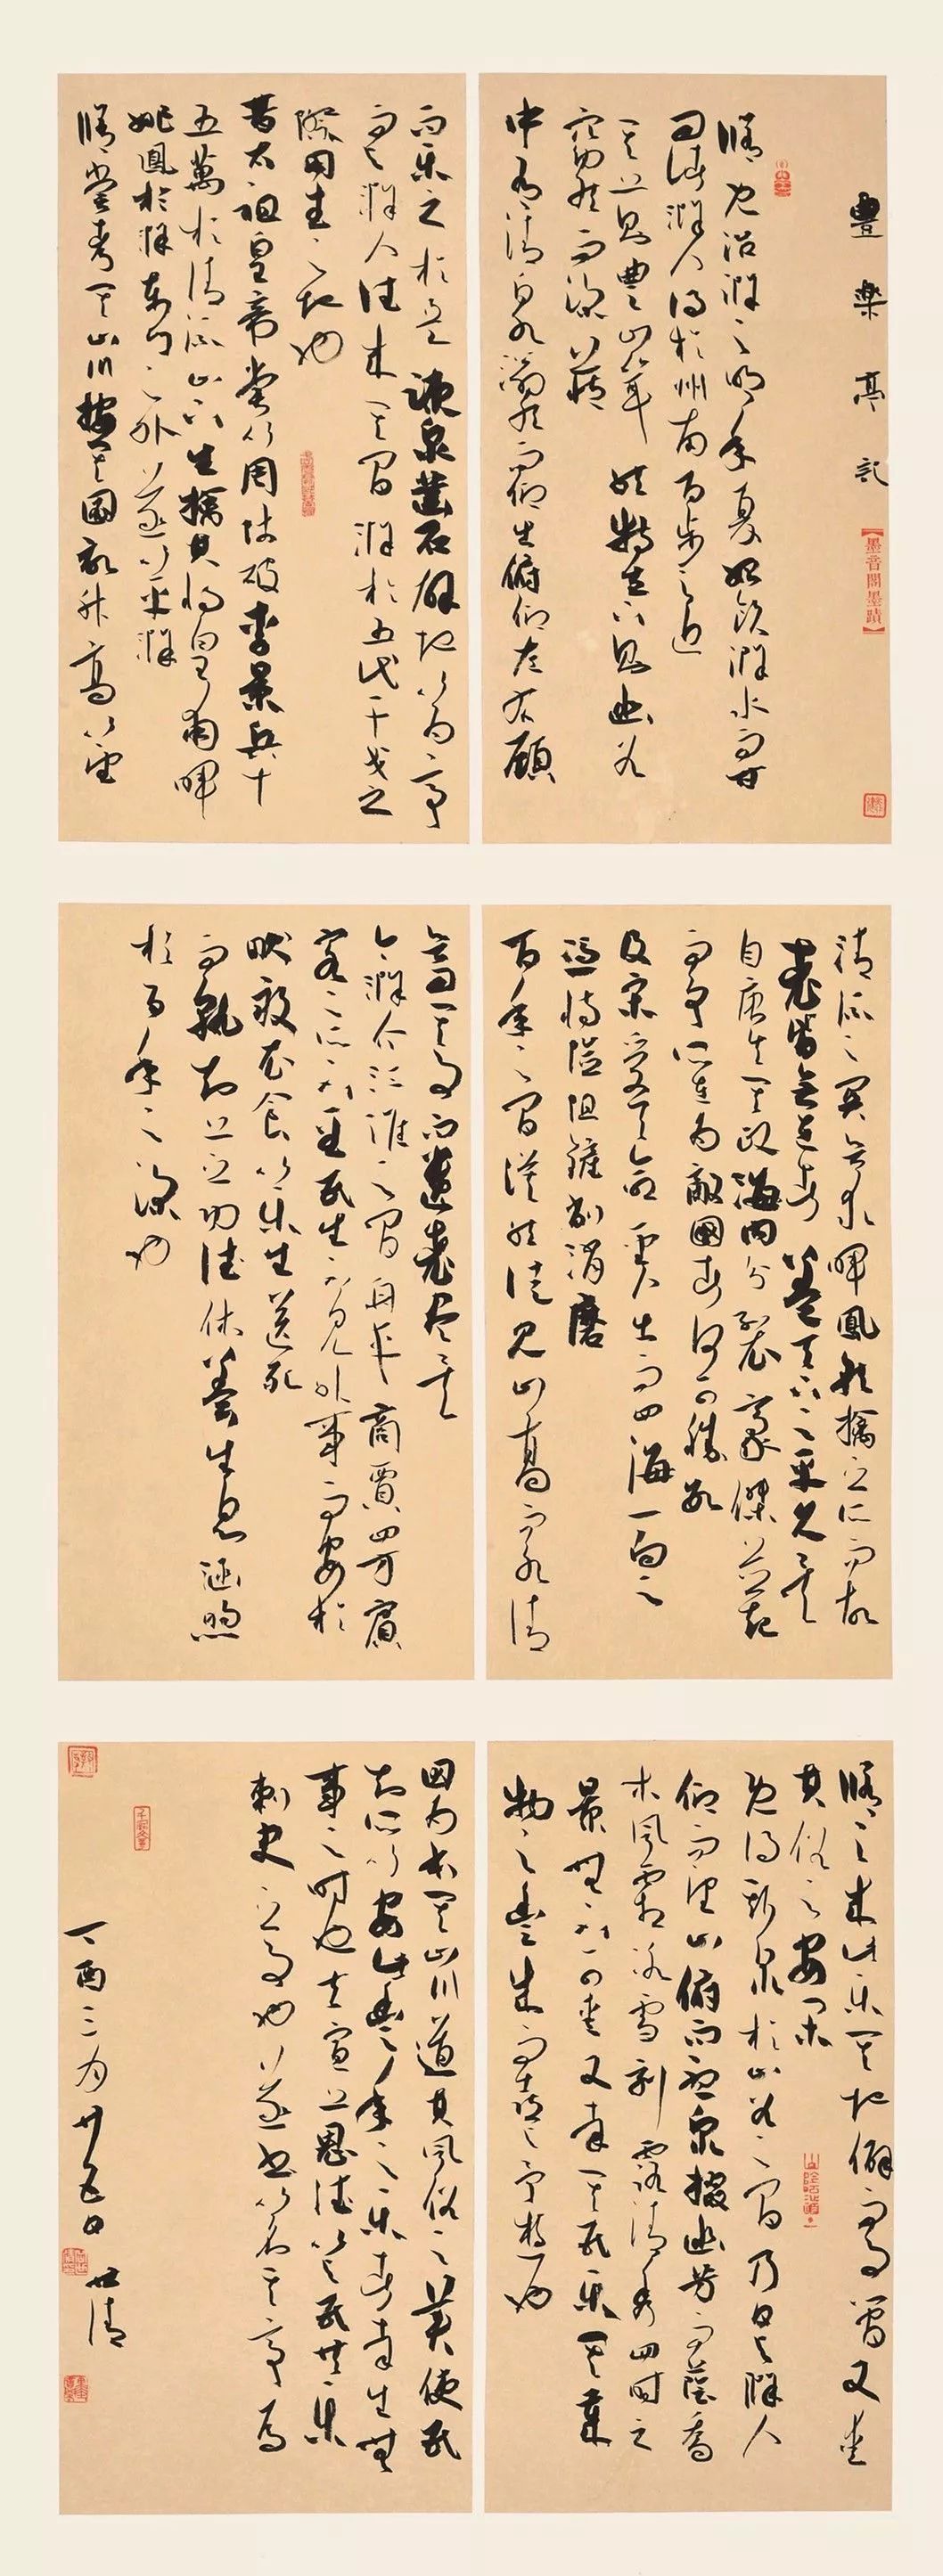 豐樂亭記
【墨音閣墨蹟】
脩既治滁之明年夏始飲滁水而甘
問諸滁人得於州南百步之近
其上則豐山聳然特立下則幽谷
窈然而深藏
中有清泉滃然而仰出俯仰左右顧
而樂之於是疏泉鑿石闢地以為亭
而與滁人往來其間滁於五代干戈之
際用武之地也
昔太祖皇帝嘗以周師破李景兵十
五萬於清流山下生擒其將皇甫暉
姚鳳於滁東門之外遂以平滁
脩嘗考其山川按其圖記升高以望
清流之關欲求暉鳳就擒之所而故
老皆無在者蓋天下之平久矣
自唐失其政海內分裂豪傑並起
而爭所在為敵國者何可勝數
及宋受天命聖人出而四海一向之
憑恃險阻鏟削消磨
百年之間漠然徒見山高而水清
欲問其事而遺老盡矣
今滁介江淮之間舟車商賈四方賓
客之所不至民生不見外事而安於
畎畝衣食以樂生送死
而孰知上之功德休養生息涵煦
於百年之深也
脩之來此樂其地僻而事簡又愛
其俗之安閑
既得斯泉於山谷之間乃日與滁人
仰而望山俯而聽泉掇幽芳而蔭喬
木風霜冰雪刻露清秀四時之
景無不可愛又幸其民樂其歲
物之豐成而喜與予遊也
因為本其山川道其風俗之美使民
知所以安此豐年之樂者幸生無
事之時也夫宣上恩德以與民共樂
刺史之事也遂書以名其亭焉
丁酉三月廿五日 世清